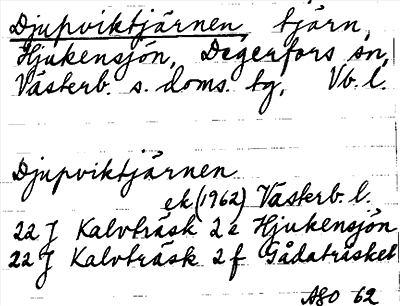 Djupviktjärnen, tjärn,
Hjukensjön, Degerfors sn,
Västerb. s. doms. tg, Vb. l.
Djupviktjärnen
ek (1962) Västerb. l.
22 J Kalvträsk 2e Hjukensjön
22 J Kalvträsk 2f Gådaträsket
ASO 62